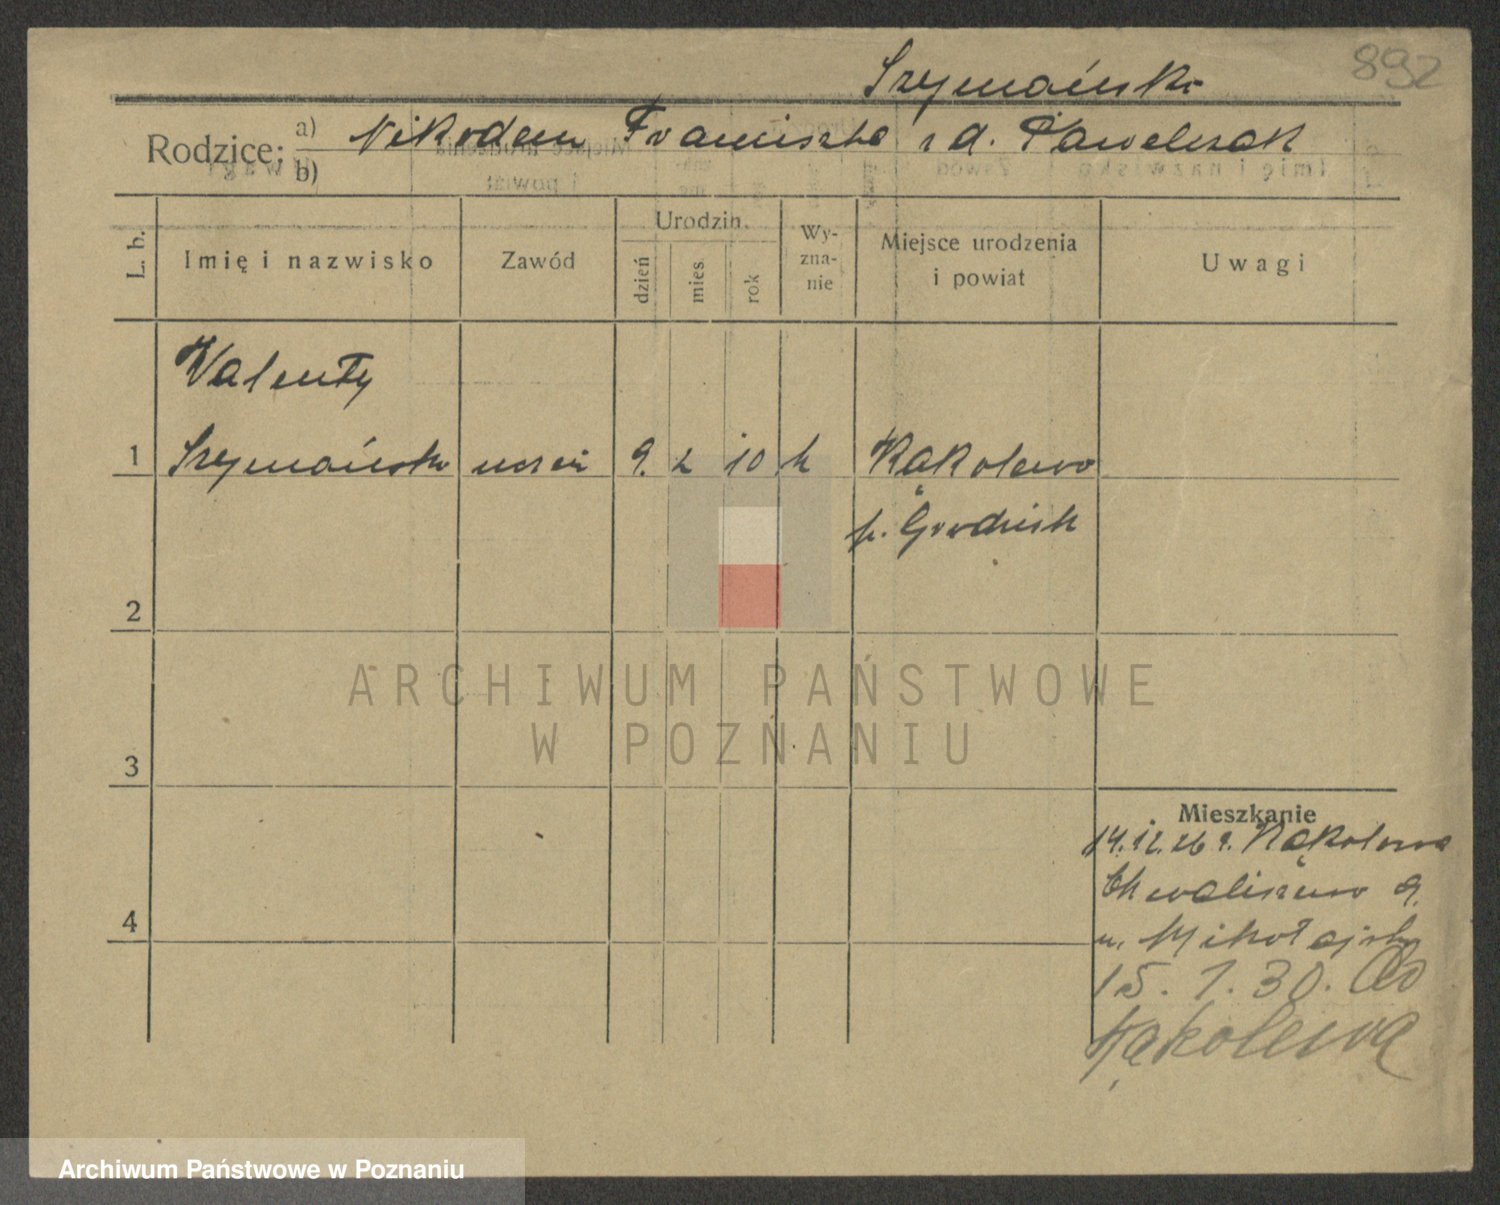 Szymański
892
Rodzice: a) Nikodem Franciszka z d. Pawelczak
b)
L. b.
Imię i nazwisko
Zawód
Urodzin.
dzień
mies.
rok
Wy-
zna-
nie
Miejsce urodzenia
i powiat
Uwagi
Walenty
1 Szymański uczeń 9. 2 10 k Kąkolewo
p. Grodzisk
2
3
4
Mieszkanie
14.12.26 z Kąkolewa
Chwaliszewo 9.
u. Mikołajsk
15. 1. 30. do
Kąkolewa
ARCHIWUM PAŃSTWOWE
W POZNANIU
Archiwum Państwowe w Poznaniu